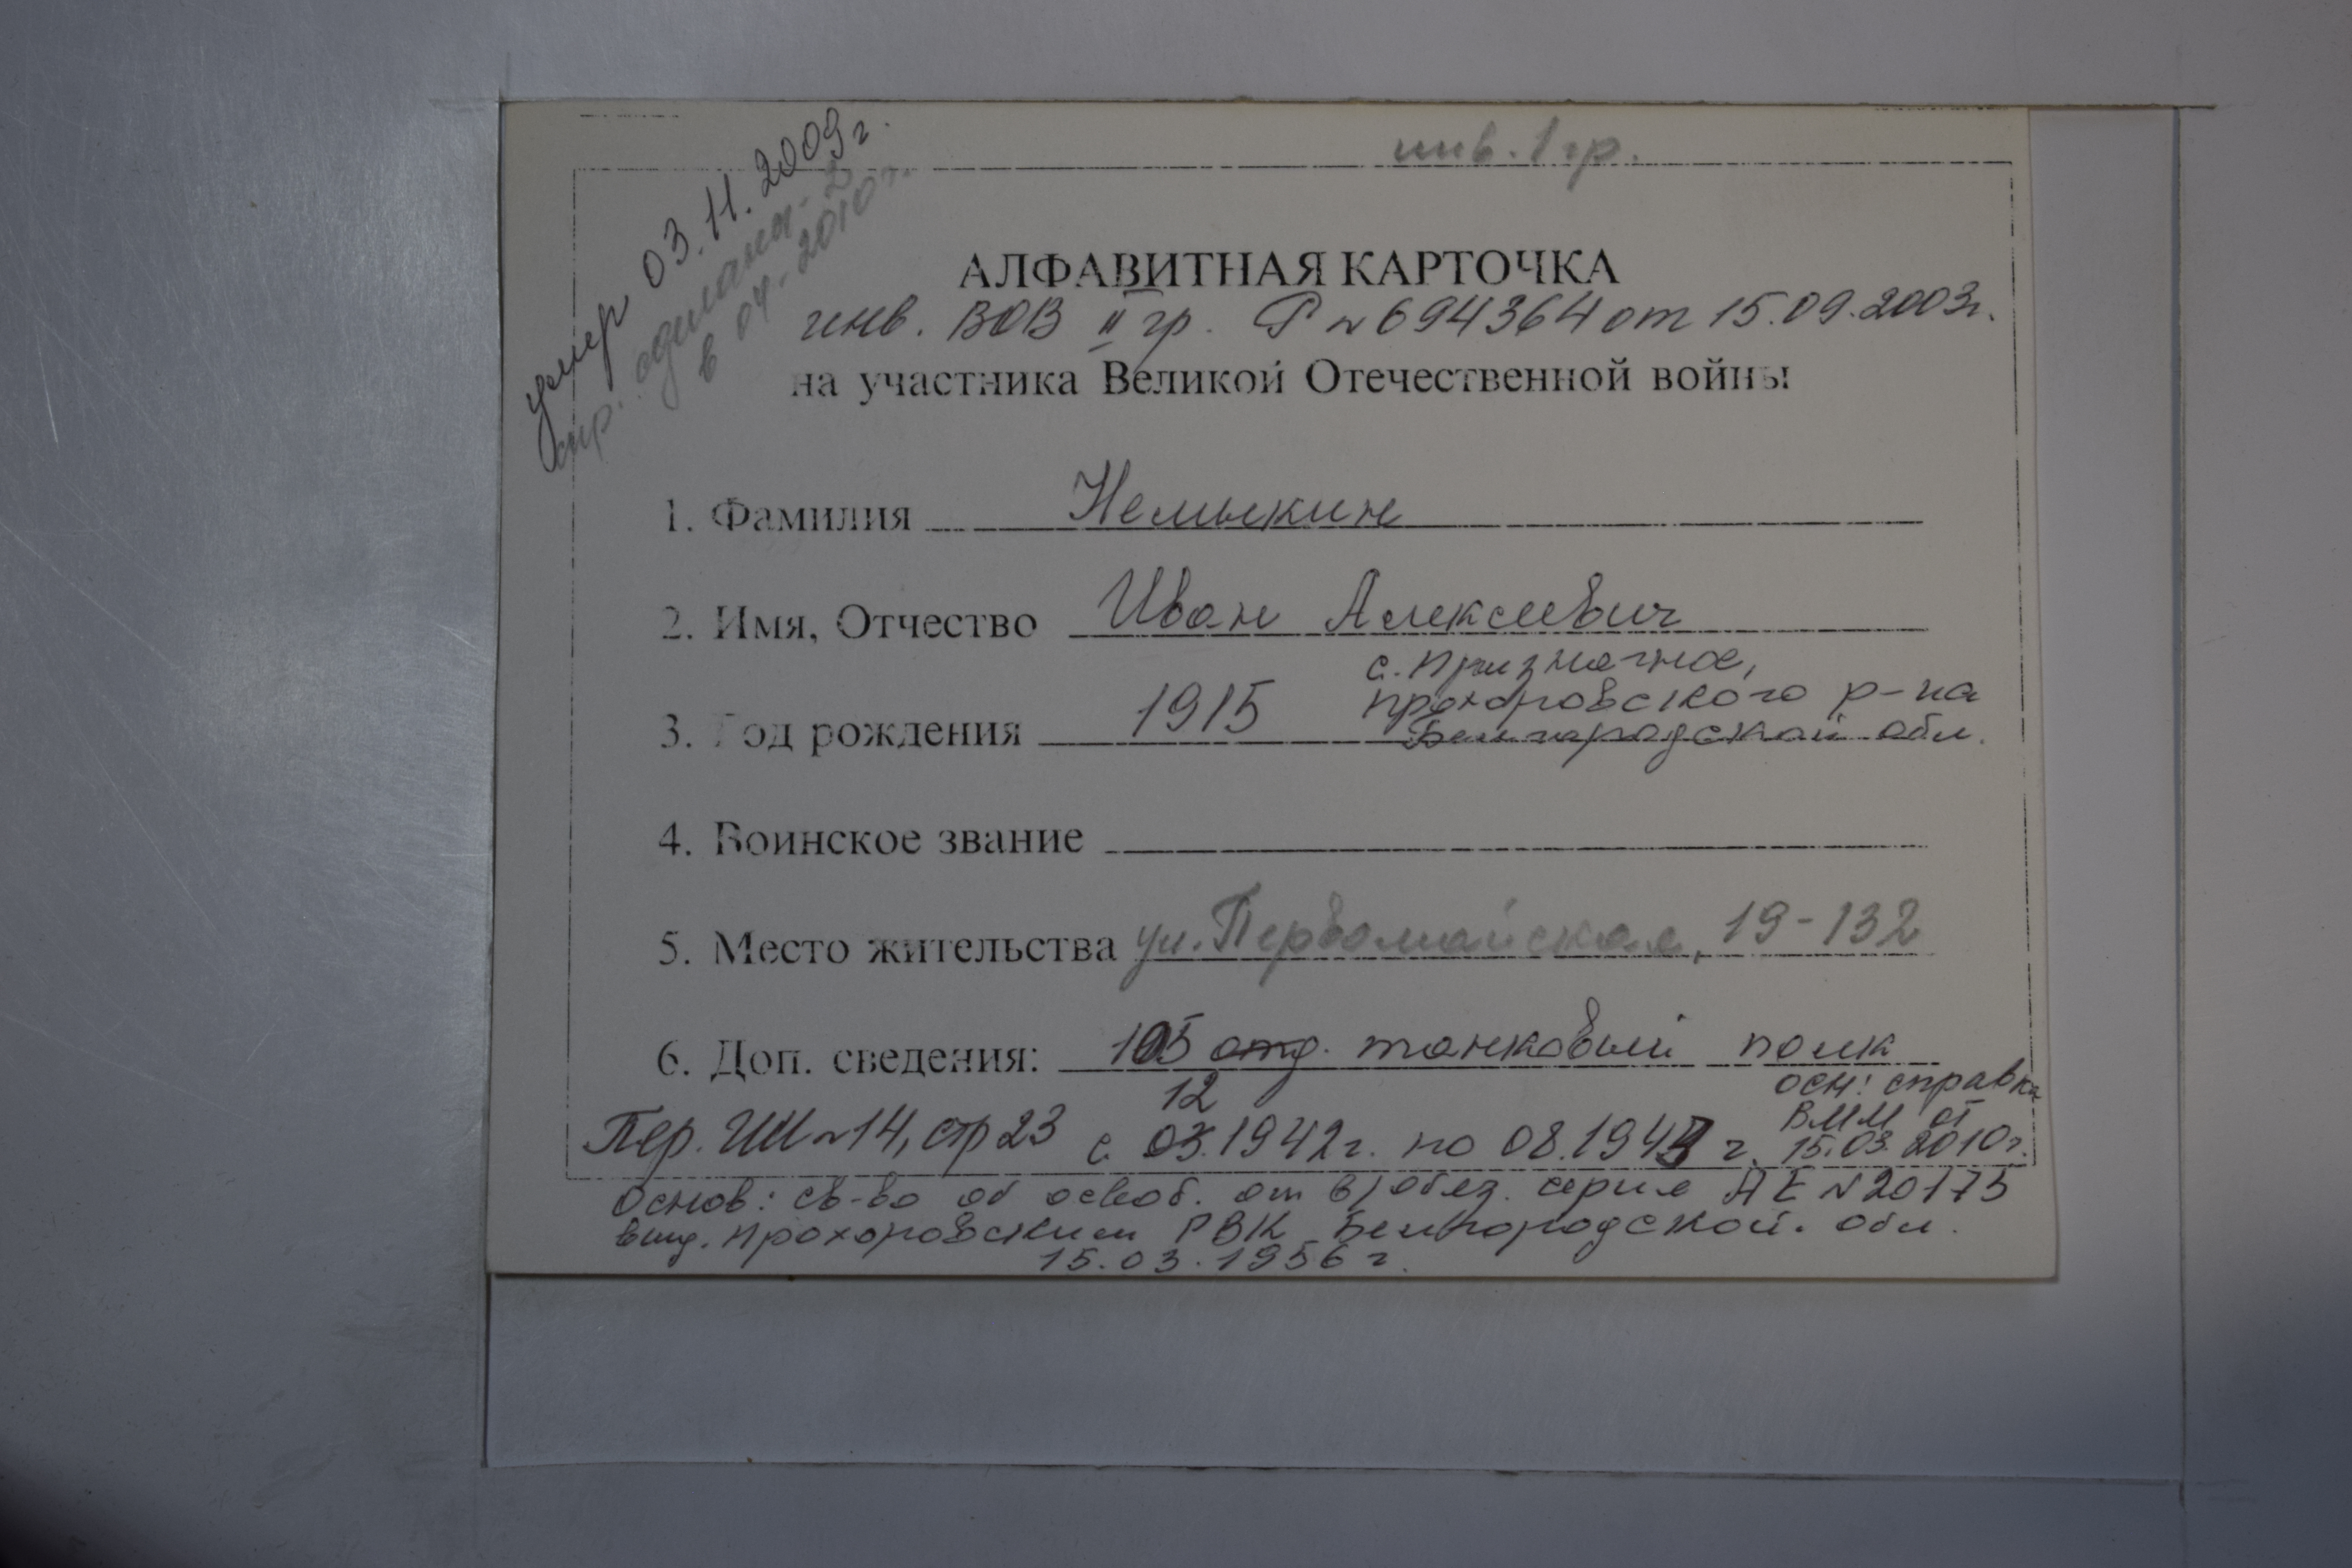 инв. 1 гр.
умер 03.11.2009г.
в 04. 2010 г.
АЛФАВИТНАЯ КАРТОЧКА
инв. ВОВ II гр. Р №694364 от 15.09.2003г.
на участника Великой Отечественной войны
1. Фамилия Немыкин
2. Имя, Отчество Иван Алексеевич
с. Призначное,
Прохоровского р-на
3. Год рождения 1915 Белгородской обл.
4. Воинское звание
5. Место жительства ул. Первомайская, 19-132
6. Доп. сведения: 105 отд. танковый полк
осн: справка
12
ВММ от
Пер. ИИ №14, стр 23 с 03.1942г. по 08.1943 г. 15.03.2010г.
Основ: св-во об освоб. от в/обяз. серия АЕ №20175
выд. Прохоровским РВК Белгородской. обл.
15.03.1956 г.